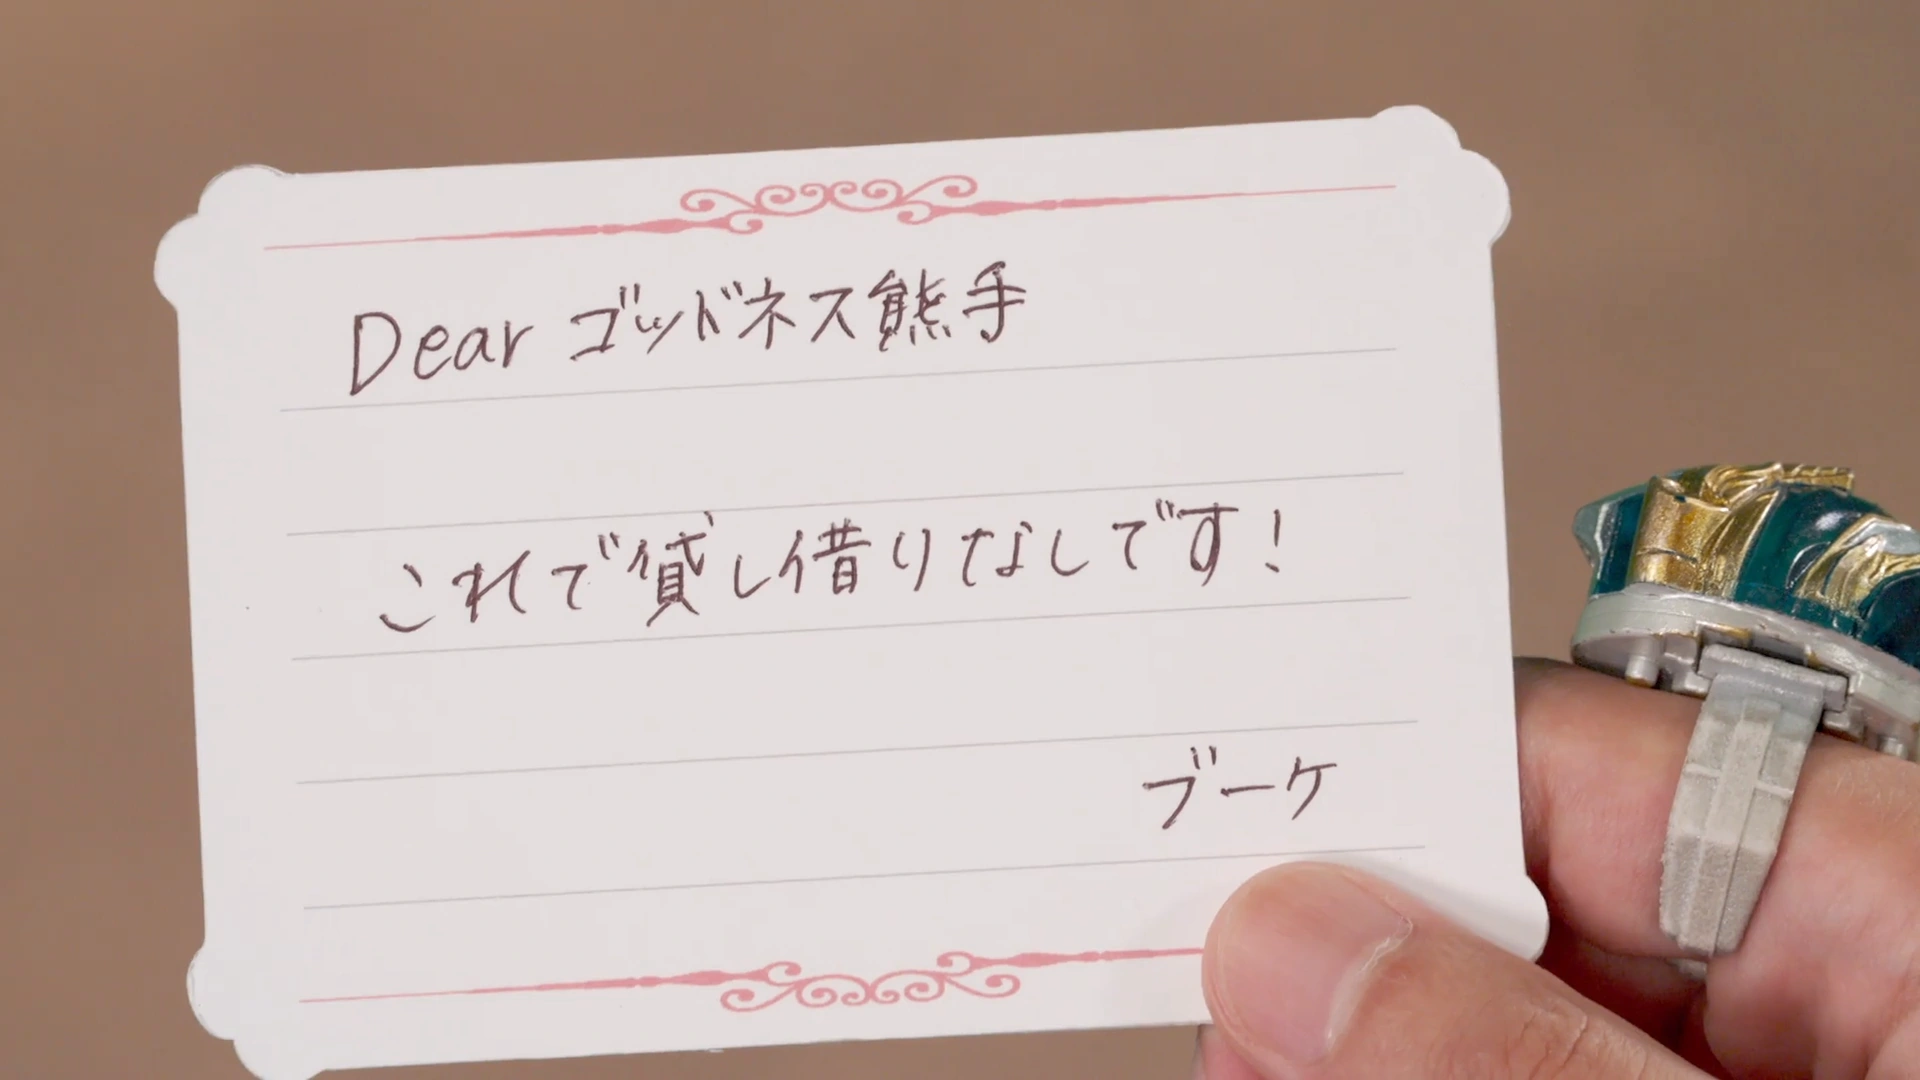 Dear ゴッドネス熊手
これで貸し借りなしです!
ブーケ